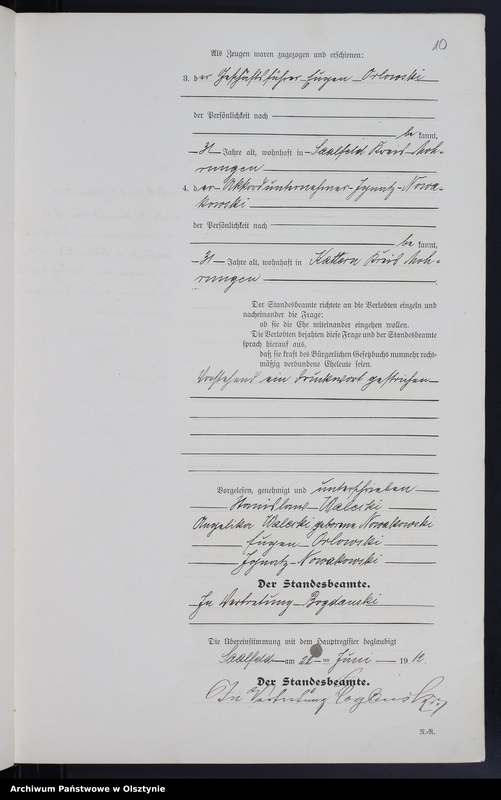 10
Als Zeugen waren zugezogen und erschienen:
3. der Geschäftsführer Eugen Orlowski
der Persönlichkeit nach
be kannt,
31 Jahre alt, wohnhaft in Saalfeld Kreis Moh-
rungen
4. der Akkordunternehmer Ignatz Nowa-
kowski
der Persönlichkeit nach
be kannt,
31 Jahre alt, wohnhaft in Kattern Kreis Moh-
rungen
Der Standesbeamte richtete an die Verlobten einzeln und
nacheinander die Frage:
ob sie die Ehe miteinander eingehen wollen.
Die Verlobten bejahten diese Frage und der Standesbeamte
sprach hierauf aus,
daß sie kraft des Bürgerlichen Gesetzbuchs nunmehr recht-
mäßig verbundene Eheleute seien.
Vorstehend ein Druckwort gestrichen
Vorgelesen, genehmigt und unterschrieben
Stanislaw Walecki
Angelika Walecki geborene Nowakowski
Eugen Orlowski
Ignatz Nowakowski
Der Standesbeamte.
In Vertretung Bogdanski
Die Übereinstimmung mit dem Hauptregister beglaubigt
Saalfeld am ten Juni 1910.
Der Standesbeamte.
In Vertretung
R.-R.
Archiwum Państwowe w Olsztynie